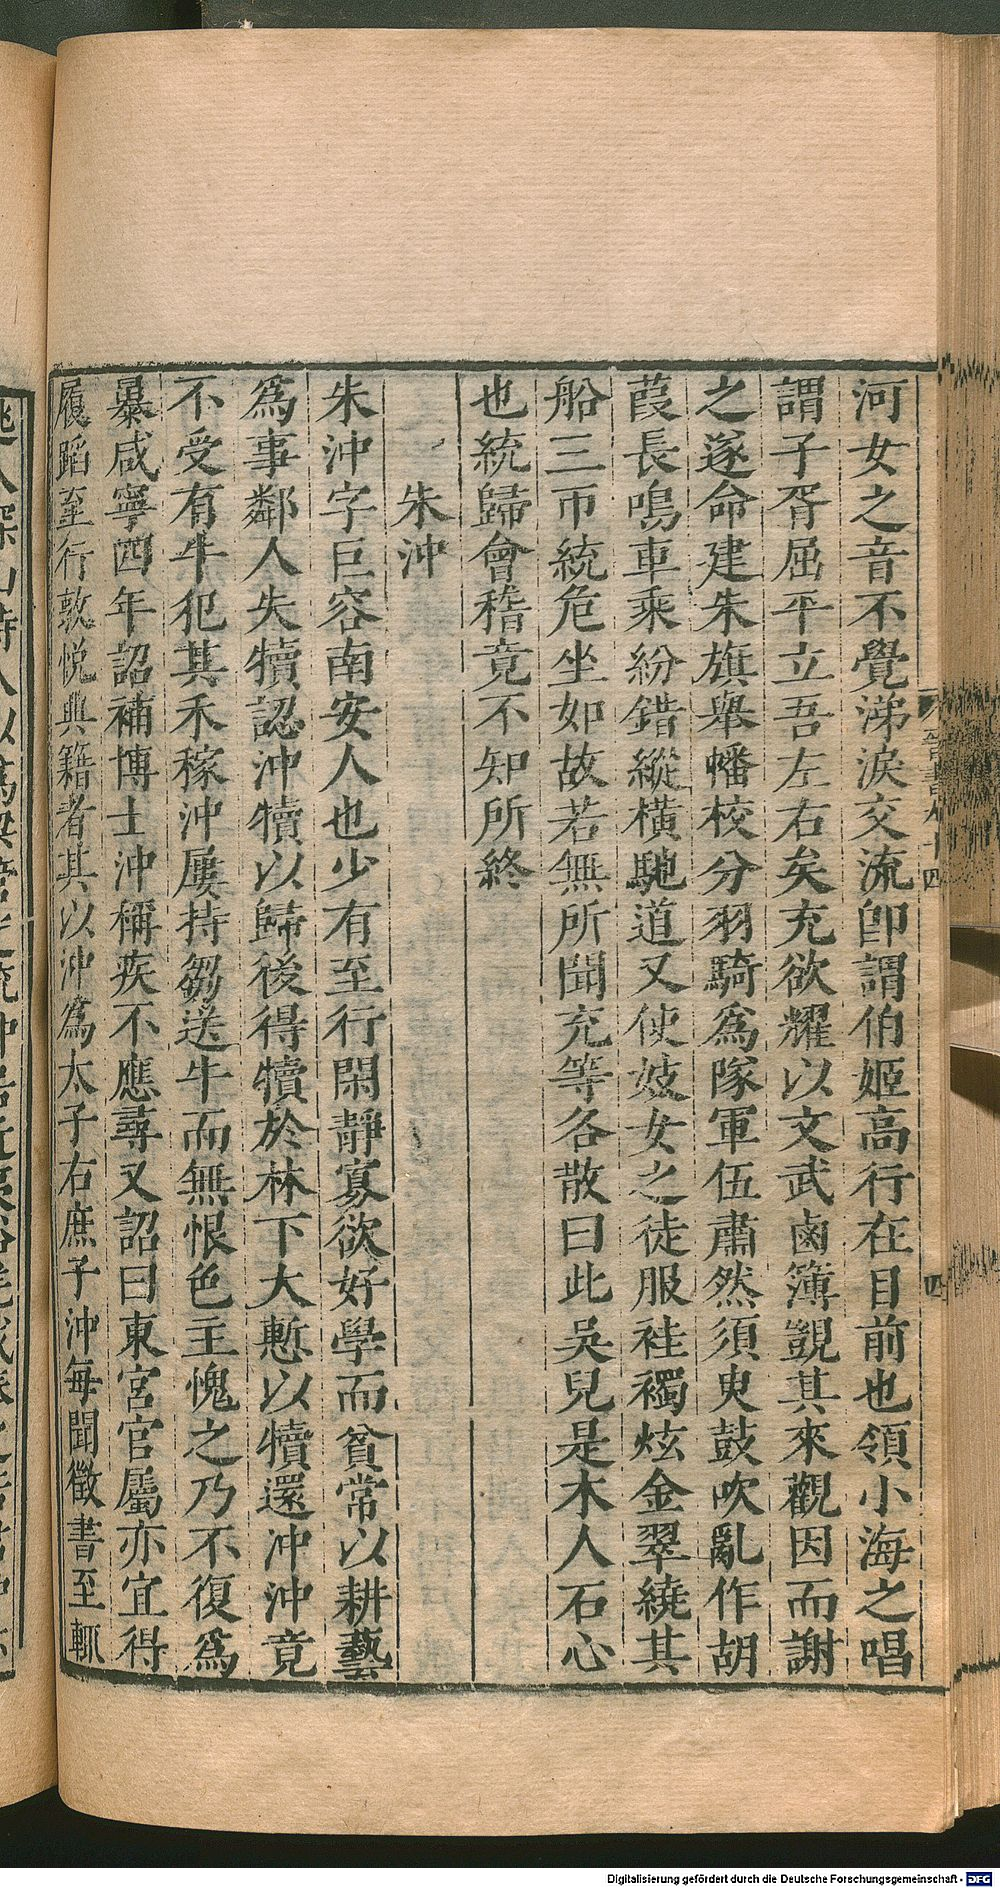 河女之音不覺涕淚交流卽謂伯姬高行在目前也領小海之唱
謂子胥屈平立吾左右矣充欲耀以文武鹵簿覬其來觀因而謝
之遂命建朱旗舉幡校分羽騎爲隊軍伍肅然須臾鼓吹亂作胡
葭長鳴車乘紛錯縱橫馳道又使妓女之徒服袿襡炫金翠繞其
船三帀統危坐如故若無所聞充等各散曰此吳兒是木人石心
也統歸會稽竟不知所終
朱沖
朱沖字巨容南安人也少有至行閑靜寡欲好學而貧常以耕藝
爲事鄰人失犢認沖犢以歸後得犢於林下大慙以犢還沖沖竟
不受有牛犯其禾稼沖屢持芻送牛而無恨色主愧之乃不復爲
暴咸寧四年詔補博士沖稱疾不應尋又詔曰東宮官屬亦宜得
履蹈至行敦悅典籍者其以沖爲太子右庶子沖每聞徵書至輒
四
Digitalisierung gefördert durch die Deutsche Forschungsgemeinschaft - DFG